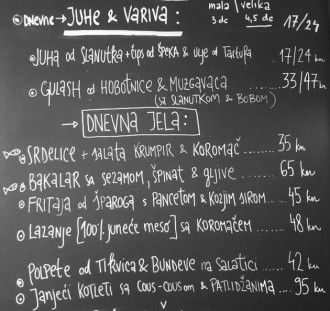 mala | velika
3 dc 4,5 dc
Dnevne → JUHE & VARIVA : 17/24
JUHA od SLANUTKA + čips od ŠPEKA & ulje od TARTUFA 17/24 kn
GULASH od HOBOTNICE & MUZGAVACA ...... 33/47 kn
(sa SLANUTKOM & BOBOM)
→ DNEVNA JELA :
SRDELICE + salata KRUMPIR & KOROMAČ ...... 35 kn
BAKALAR sa SEZAMOM, ŠPINAT & gljive ...... 65 kn
FRITAJA od ŠPAROGA s PANCETOM & KOZJIM SIROM ..... 45 kn
LAZANJE [100% juneće meso] sa KOROMAČEM .... 48 kn
POLPETE od TIKVICA & BUNDEVE na SALATICI ...... 42 kn
JANJEĆI KOTLETI sa COUS-COUSom & PATLIDŽANIMA .... 95 kn